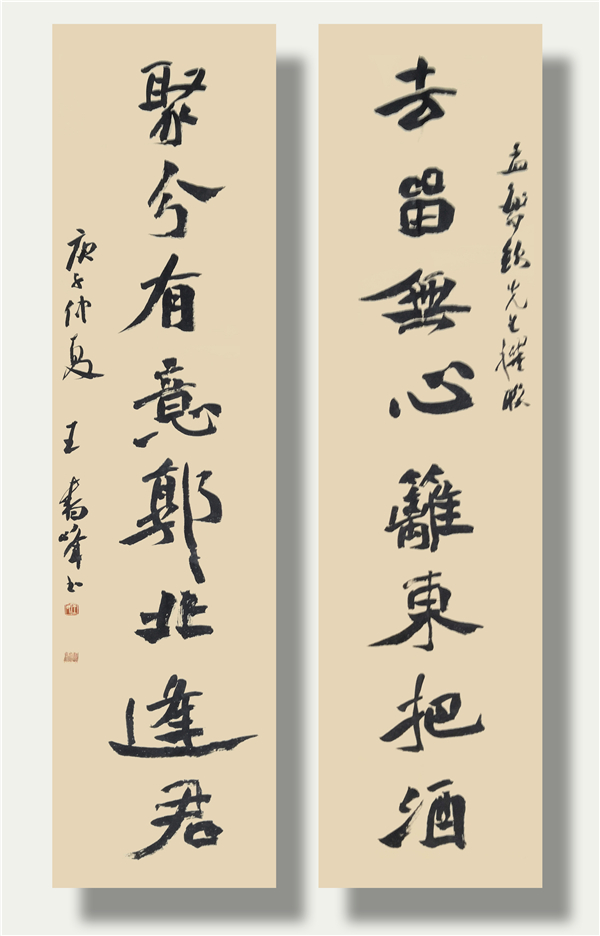 孟 先生撰联
去留無心籬東把酒
聚分有意郭北逢君
庚子仲夏 王 峰书